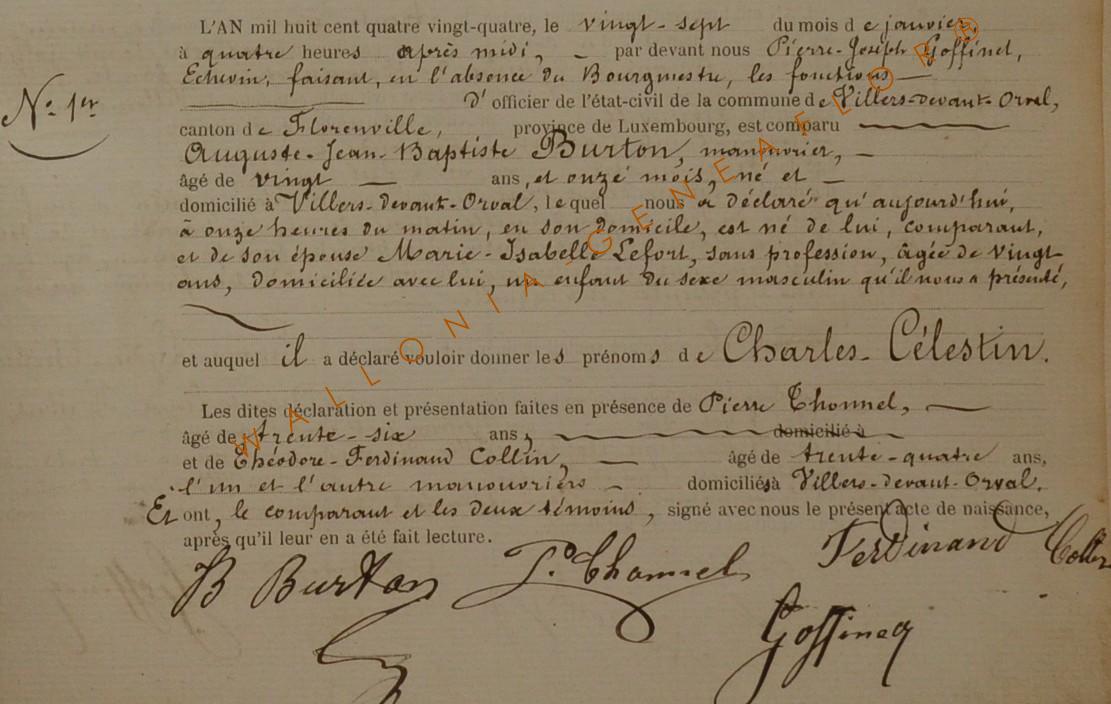 L'AN mil huit cent quatre vingt-quatre, le vingt-sept du mois de janvier,
à quatre heures après midi, - par devant nous Pierre-Joseph Goffinet,
Echevin, faisant, en l'absence du Bourgmestre, les fonctions
N° 1er
d'officier de l'état-civil de la commune de Villers-devant-Orval,
canton de Florenville, province de Luxembourg, est comparu
Auguste-Jean-Baptiste Burton, manouvrier, -
âgé de vingt — ans, et onze mois, né et -
domicilié à Villers-devant-Orval, lequel nous a déclaré qu'aujourd'hui,
à onze heures du matin, en son domicile, est né de lui, comparant,
et de son épouse Marie-Isabelle Lefort, sans profession, âgée de vingt
ans, domiciliée avec lui, un enfant du sexe masculin qu'il nous a présenté,
et auquel il a déclaré vouloir donner les prénoms de Charles-Célestin.
Les dites déclaration et présentation faites en présence de Pierre Thonnel, —
âgé de trente-six ans, domicilié à
et de Théodore-Ferdinand Collin, — âgé de trente-quatre ans,
l'un et l'autre manouvriers - domiciliés à Villers-devant-Orval.
Et ont, le comparant et les deux témoins, signé avec nous le présent acte de naissance,
après qu'il leur en a été fait lecture.
B Burton P. Thonnel Ferdinand Collin
Goffinet
WALLONIA-GENEAFLORE®